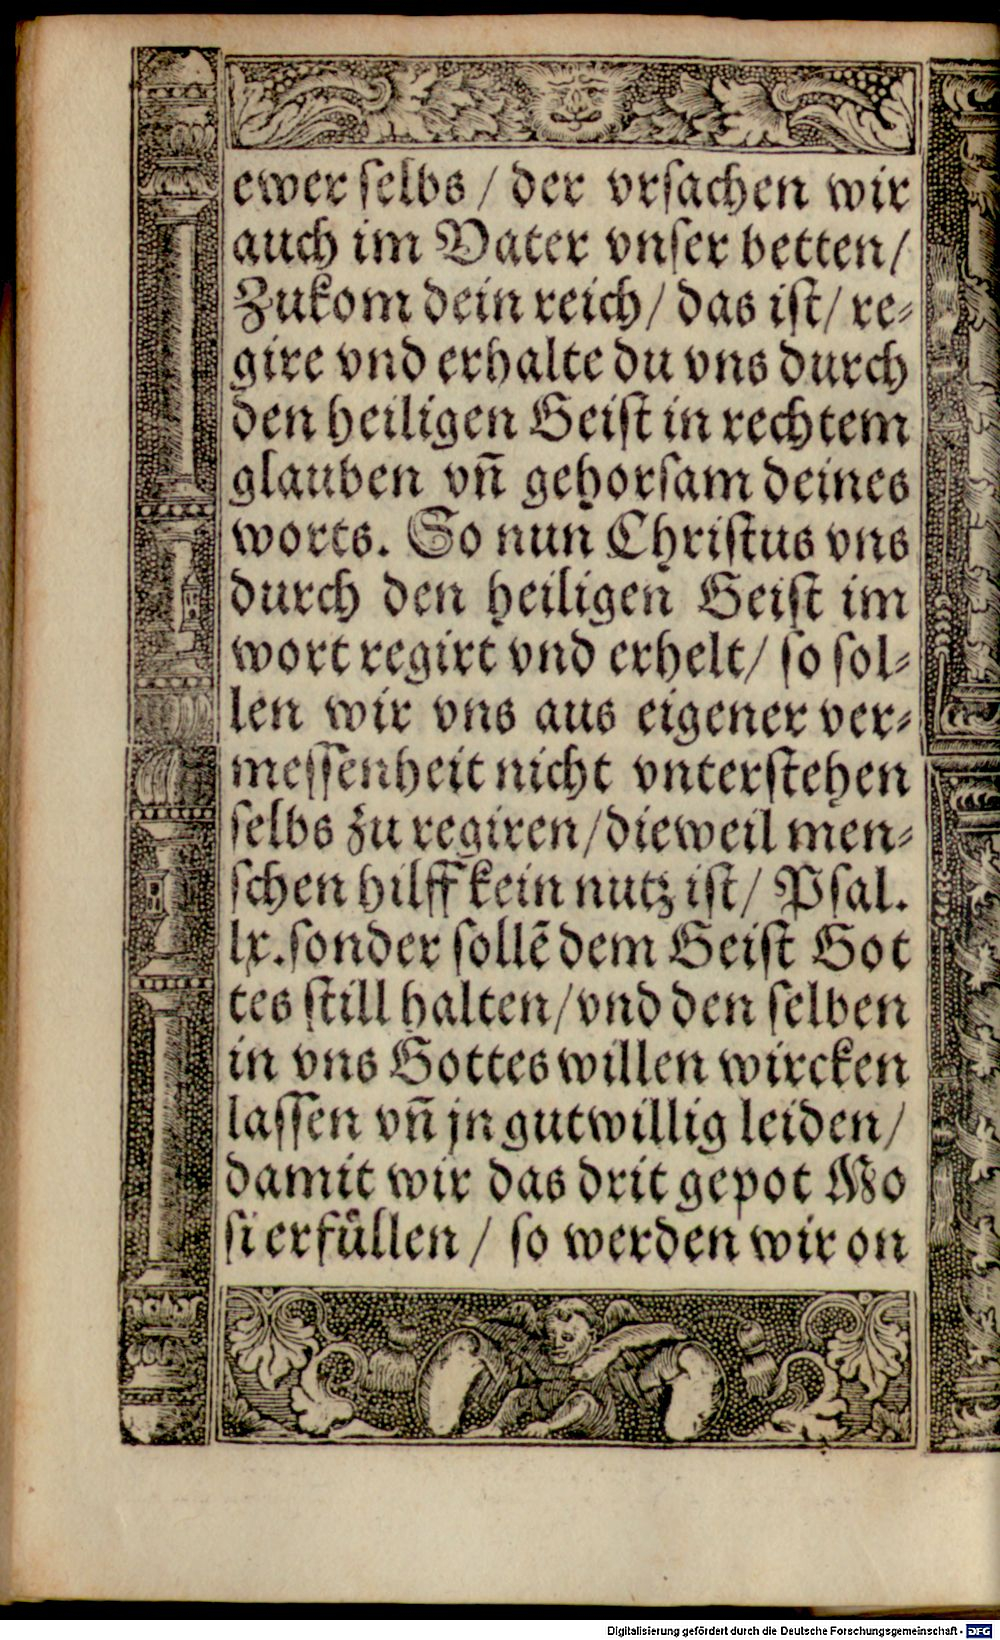 ewer ſelbs / der vrſachen wir
auch im Vater vnſer betten /
Zukom dein reich / das iſt / re⸗
gire vnd erhalte du vns durch
den heiligen Geiſt in rechtem
glauben vn̄ gehorſam deines
worts. So nun Chriſtus vns
durch den heiligen Geiſt im
wort regirt vnd erhelt / ſo ſol⸗
len wir vns aus eigener ver⸗
meſſenheit nicht vnterſtehen
ſelbs zu regiren / dieweil men⸗
ſchen hilff kein nutz iſt / Pſal.
lx. ſonder ſollē dem Geiſt Got
tes ſtill halten / vnd den ſelben
in vns Gottes willen wircken
laſſen vn̄ jn gutwillig leiden /
damit wir das drit gepot Mo
ſi erfüllen / ſo werden wir on
Digitalisierung gefördert durch die Deutsche Forschungsgemeinschaft - DFG